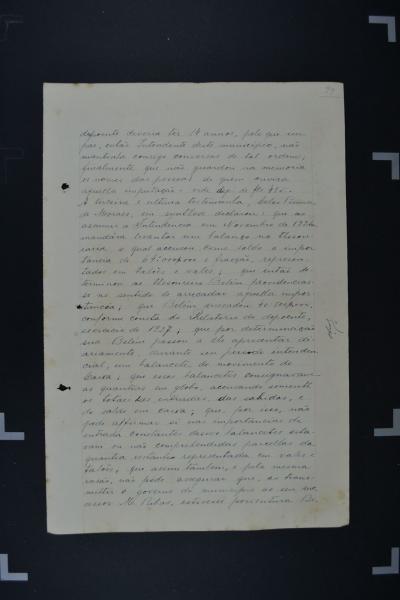 deposito deveria ter 14 annos, pelo que seu
pae, então Intendente deste municipio, não
mantinha comsigo conversas de tal ordem;
finalmente que não guardou na memoria
os nomes das pessoas de quem ouvira
aquella imputação - vide dep. de fl. 436.
A terceira e ultima testemunha,
de Moraes, em synthese declarou: que ao
assumir a Intendencia em Novembro de
mandára levantar um balanço na Thesou-
raria o qual accusou como saldo a impor-
tancia de e fracção, represen-
tados em talões e vales; que então de-
terminou ao thesoureiro Belém providencias-
se no sentido de arrecadar aquella impor-
tancia; que Belém arrecadou
conforme consta do Relatorio do depoente,
exercicio de 1927; que por determinação
sua Belém passou a lhe apresentar di-
ariamente, durante seu periodo intenden-
cial, um balancete do movimento de
Caixa; que esses balancetes consignavam
as quantias em globo, accusando sómente
os totaes das entradas, das sahidas, e
do saldo em caixa; que, por isso, não
pode affirmar si nas importancias de
entrada constantes desses balancetes esta-
vam ou não comprehendidas parcellas da
quantia restante representada em vales e
talões; que assim tambem, e pela mesma
razão, não póde assegurar que, ao trans-
mittir o governo do municipio ao seu suc-
cessor Ribas, estivesse porventura